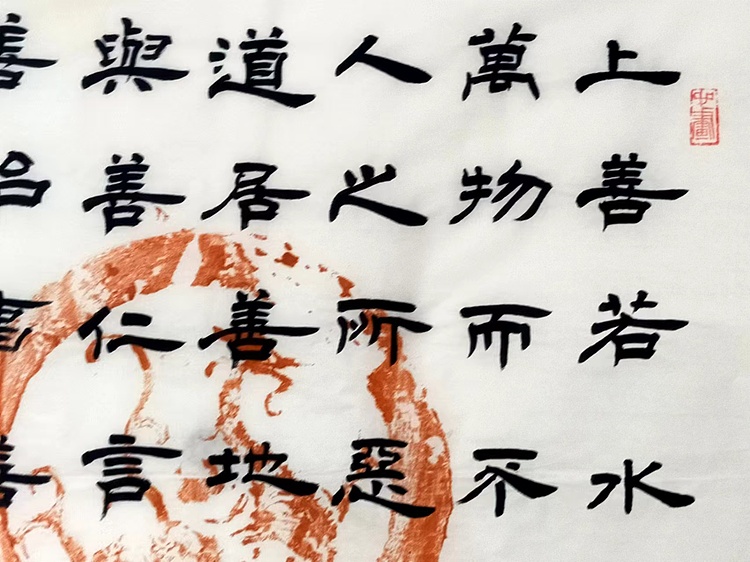 上善若水
萬物而不
人之所惡
道居善地
與善仁言
善 善